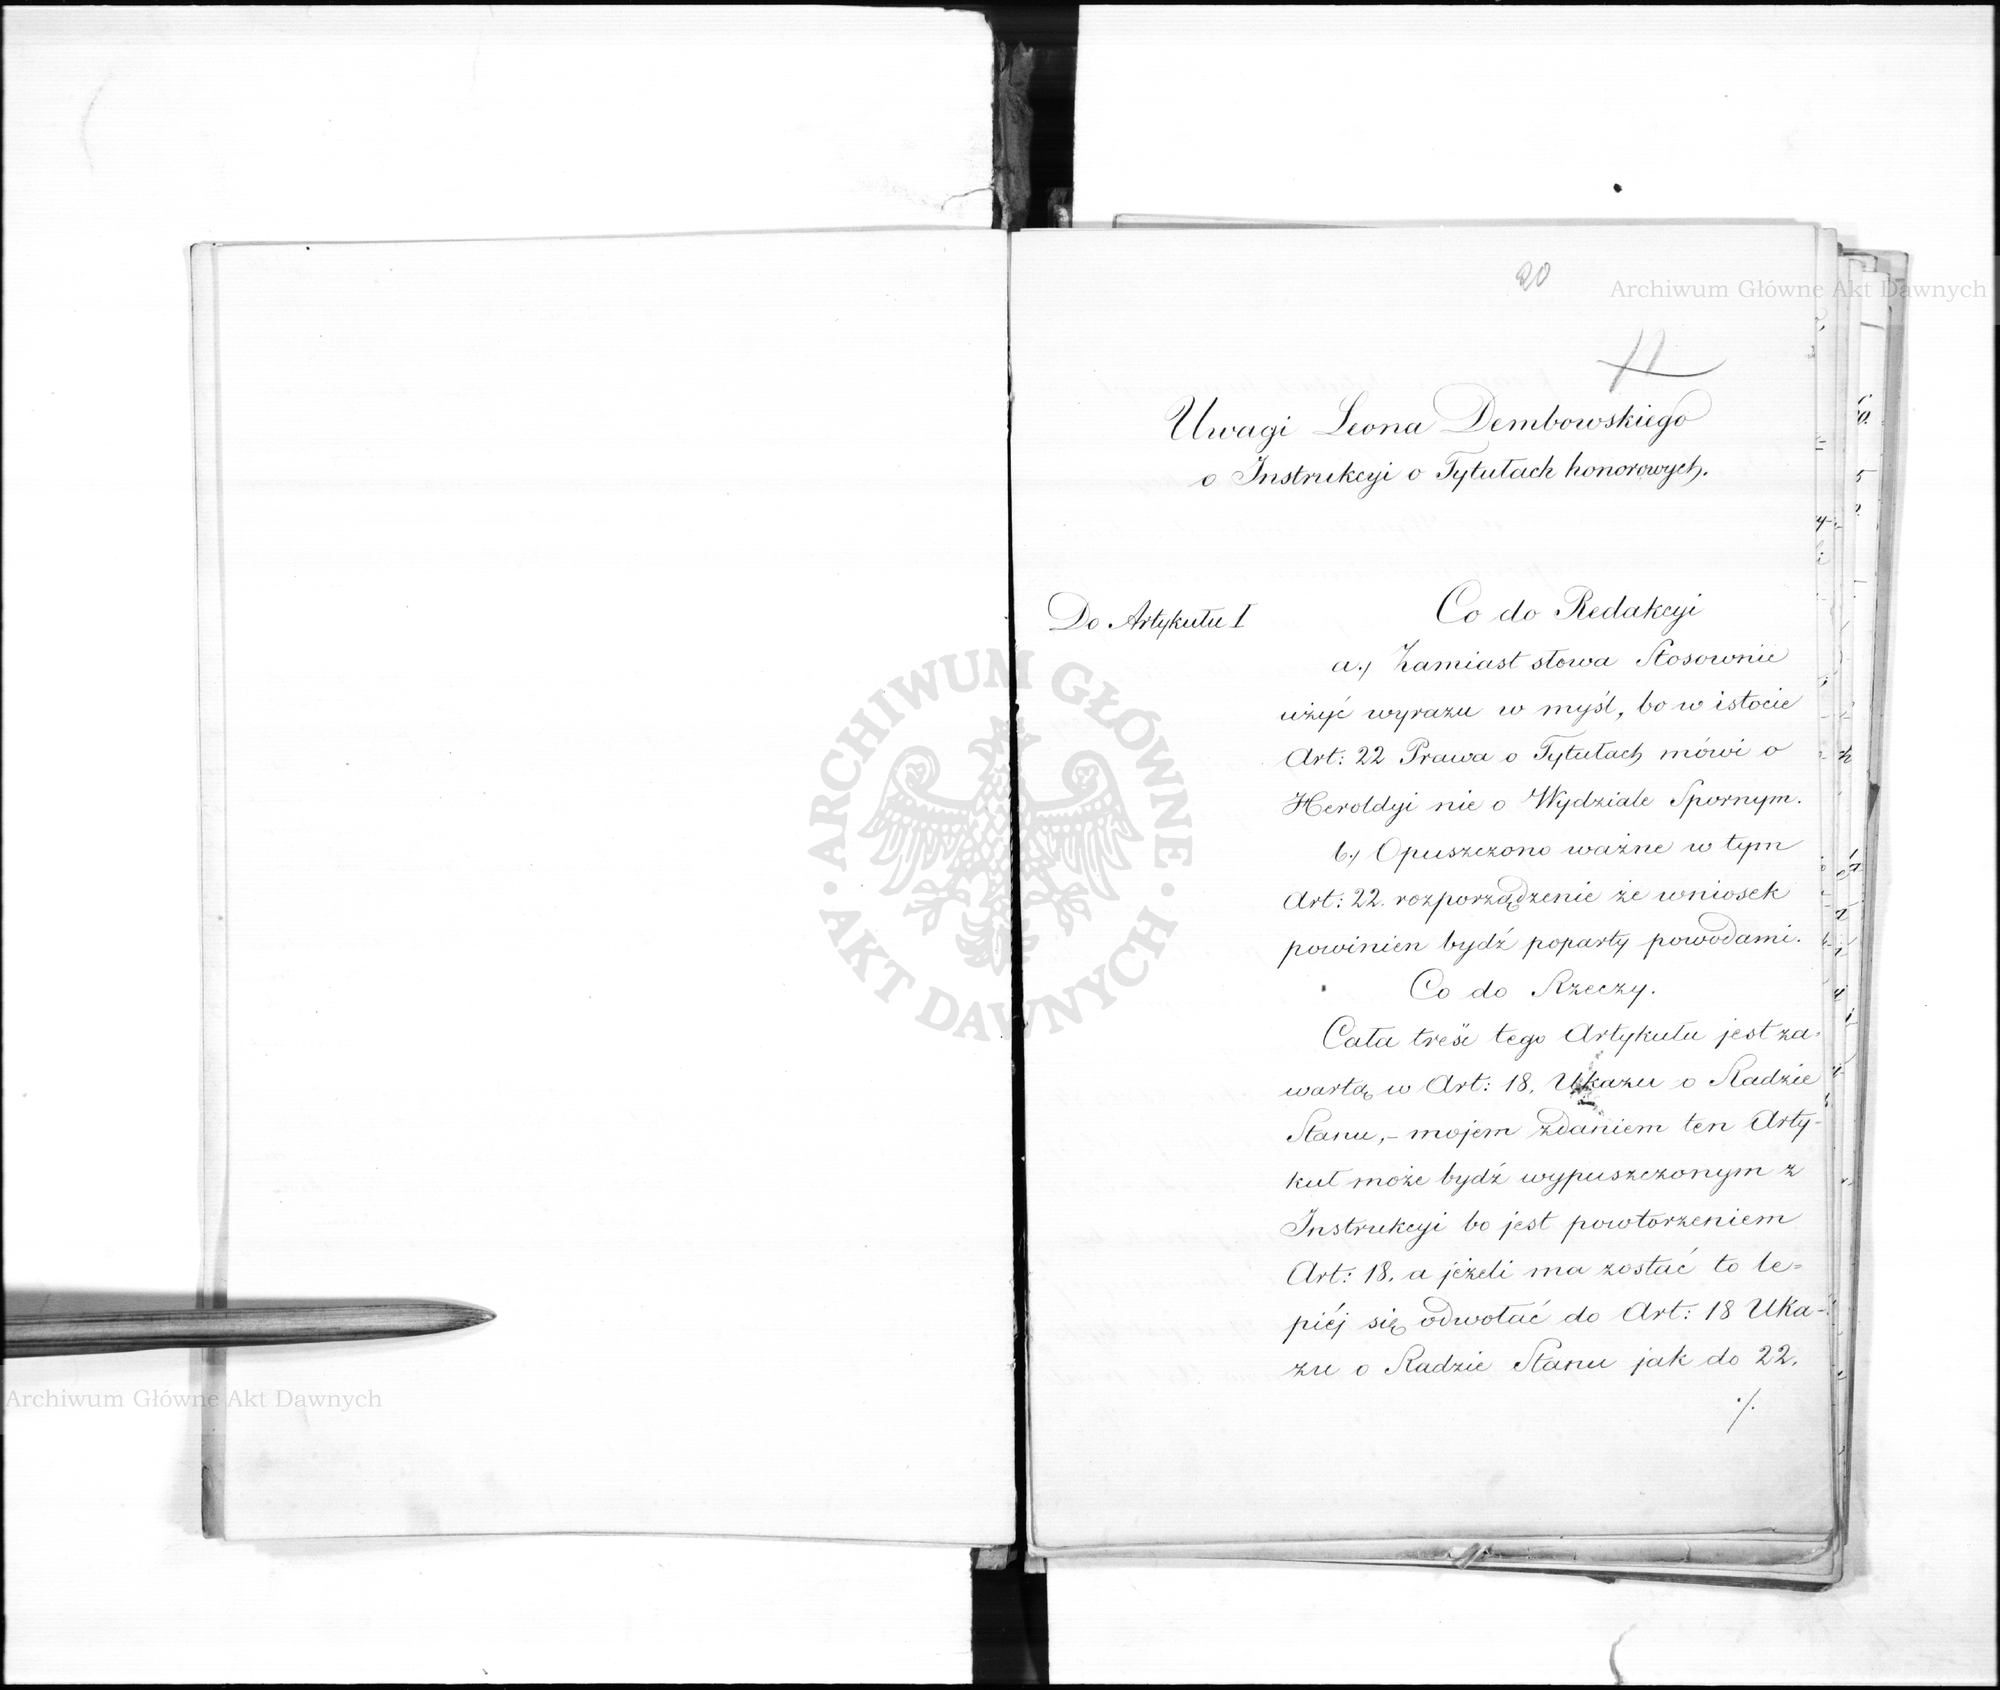 20
11
Uwagi Leona Dembowskiego
o Instrukcyi o Tytułach honorowych.
Do Artykułu I
Co do Redakcyi
a.) Zamiast słowa Stosownie
użyć wyrazu w myśl, bo w istocie
Art: 22 Prawa o Tytułach mówi o
Heroldyi nie o Wydziale Spornym.
b.) Opuszczono ważne w tym
Art: 22. rozporządzenie że wniosek
powinien bydź poparty powodami.
Co do Rzeczy.
Cała treść tego Artykułu jest za=
wartą w Art: 18. Ukazu o Radzie
Stanu, – mojem zdaniem ten Arty-
kuł może bydź wypuszczonym z
Instrukcyi bo jest powtorzeniem
Art: 18. a jeżeli ma zostać to le=
piéj się odwołać do Art: 18 Uka-
zu o Radzie Stanu jak do 22.
./.
Archiwum Główne Akt Dawnych
ARCHIWUM GŁÓWNE
AKT DAWNYCH
Archiwum Główne Akt Dawnych